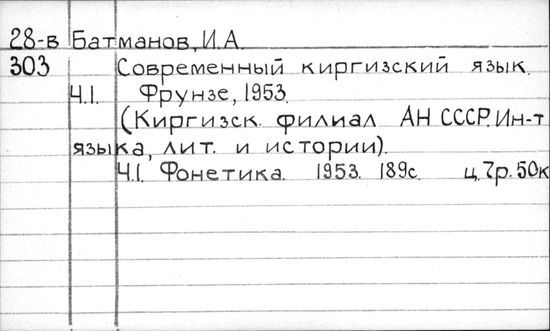 28-в Батманов, И.А.
303 Современный киргизский язык.
Ч.1. Фрунзе, 1953.
(Киргизск. филиал АН СССР. Ин-т
языка, лит. и истории).
Ч.1. Фонетика. 1953. 189с. ц. 7р. 50к